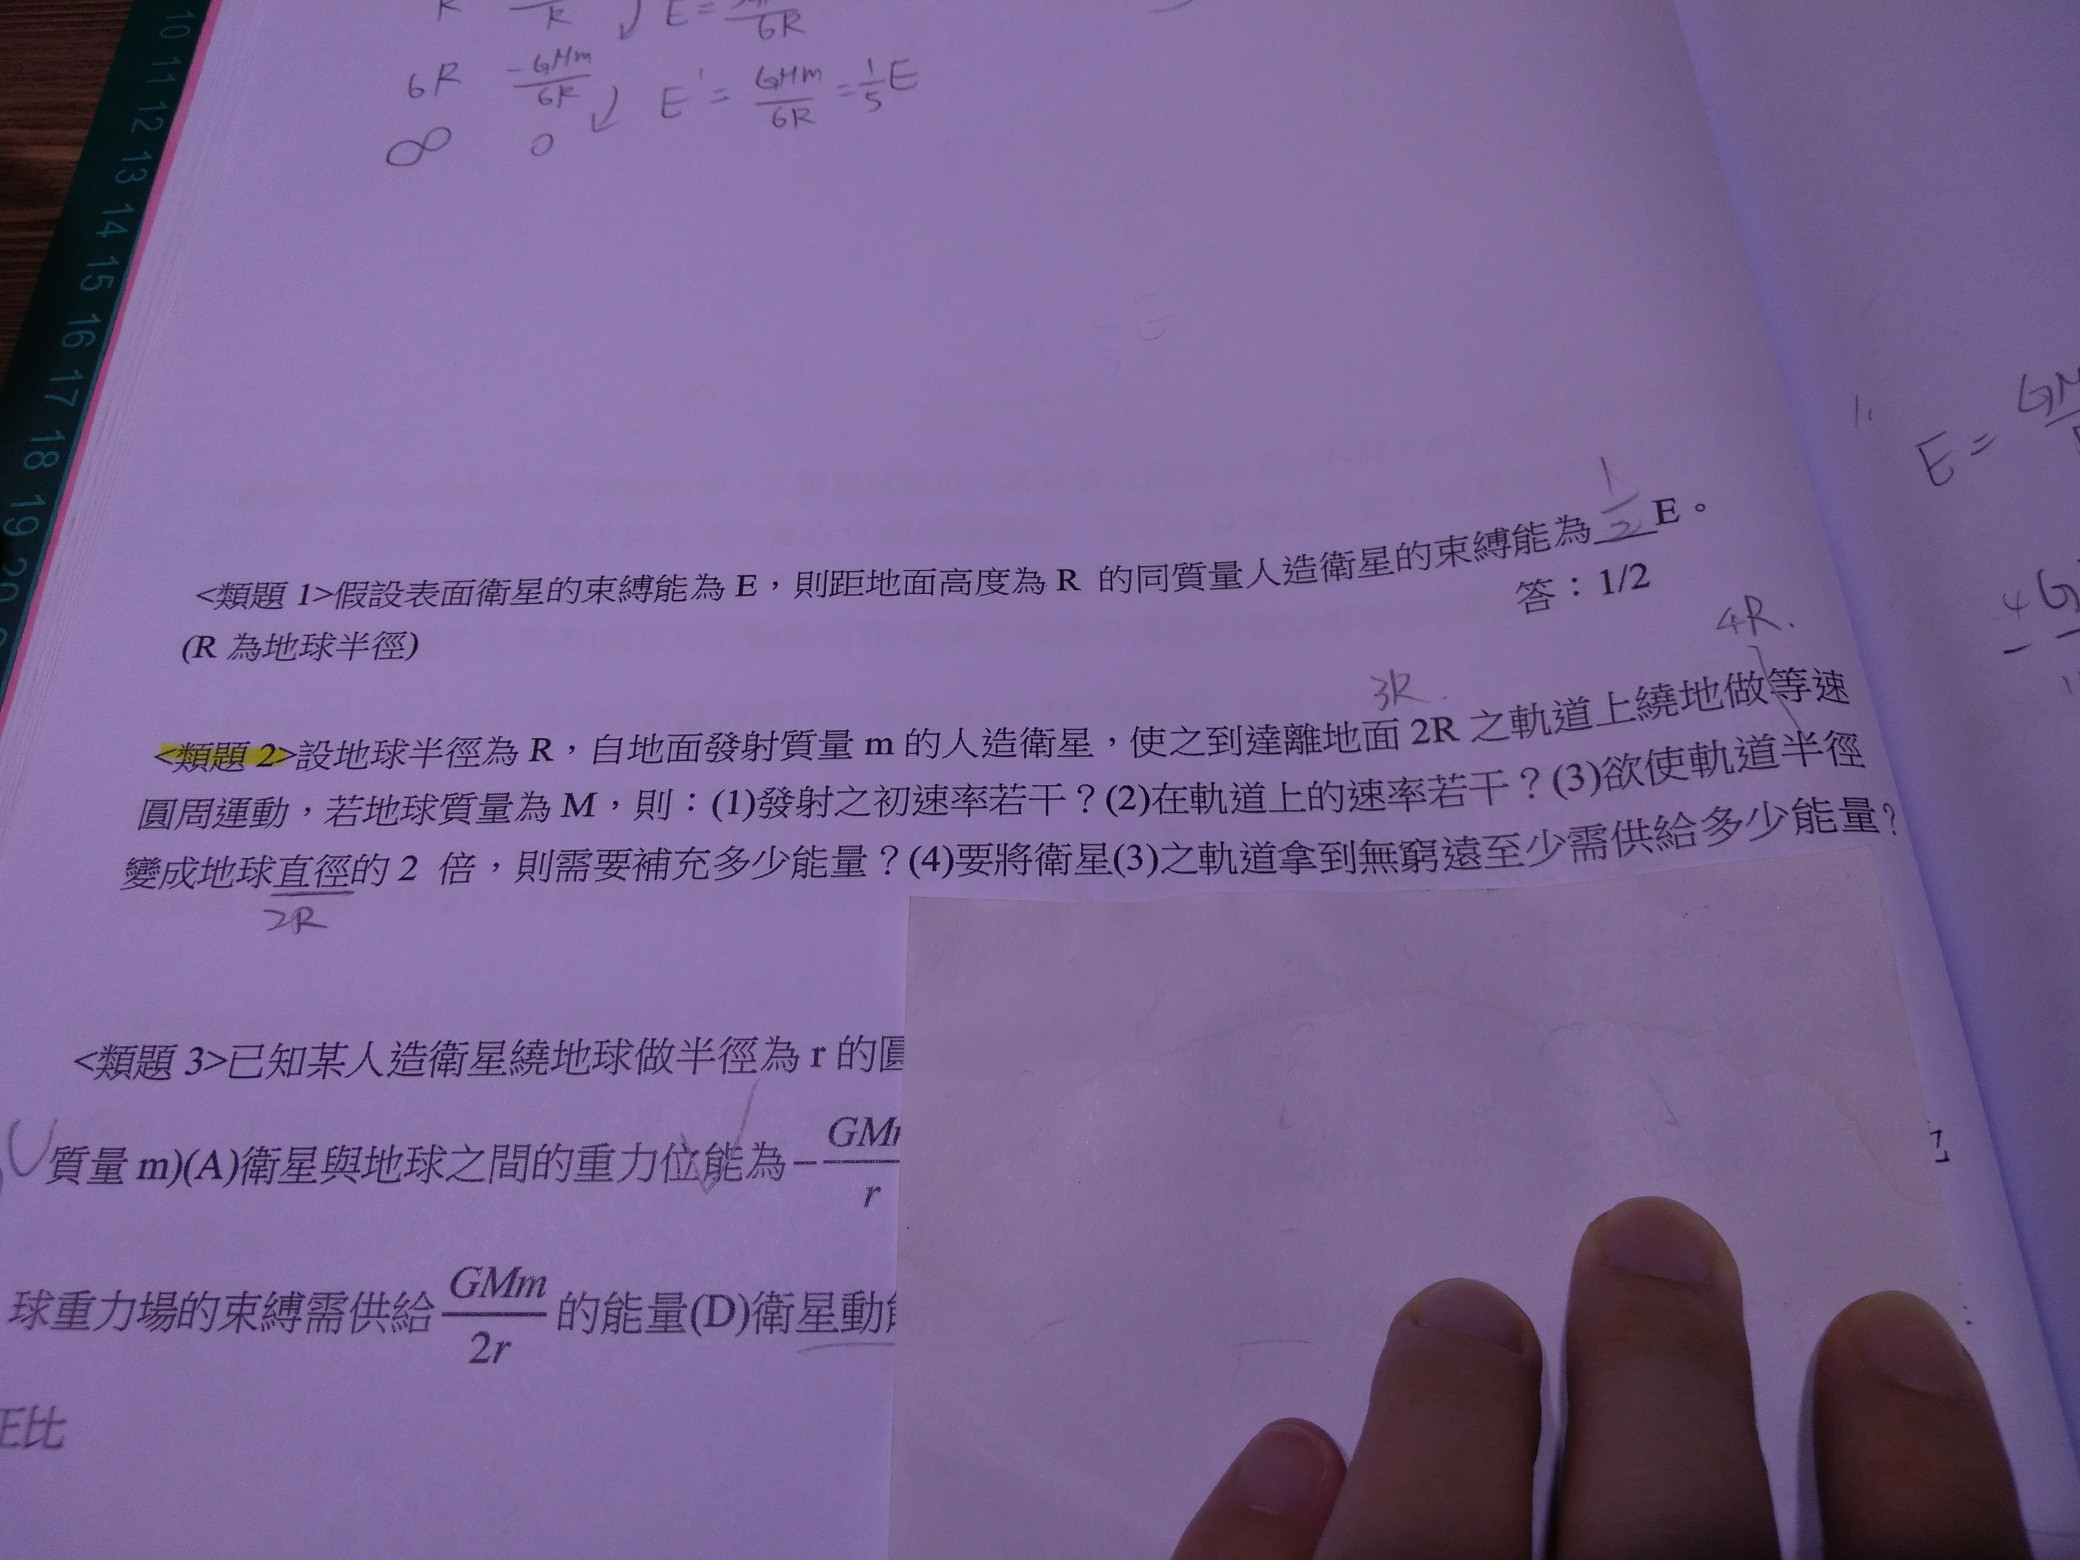 10 11 12 13 14 15 16 17 18 19 20
E = 6R
6R -GMm/6R E' = GMm/6R = 1/5 E
∞ 0
1.
E =
<類題 1>假設表面衛星的束縛能為 E，則距地面高度為 R 的同質量人造衛星的束縛能為 1/2 E。
(R 為地球半徑) 答：1/2
4R.
3R.
<類題 2>設地球半徑為 R，自地面發射質量 m 的人造衛星，使之到達離地面 2R 之軌道上繞地做等速
圓周運動，若地球質量為 M，則：(1)發射之初速率若干？(2)在軌道上的速率若干？(3)欲使軌道半徑
變成地球直徑的 2 倍，則需要補充多少能量？(4)要將衛星(3)之軌道拿到無窮遠至少需供給多少能量？
2R
<類題 3>已知某人造衛星繞地球做半徑為 r 的圓
質量 m)(A)衛星與地球之間的重力位能為 -GMm/r
球重力場的束縛需供給 GMm/2r 的能量(D)衛星動能
正比